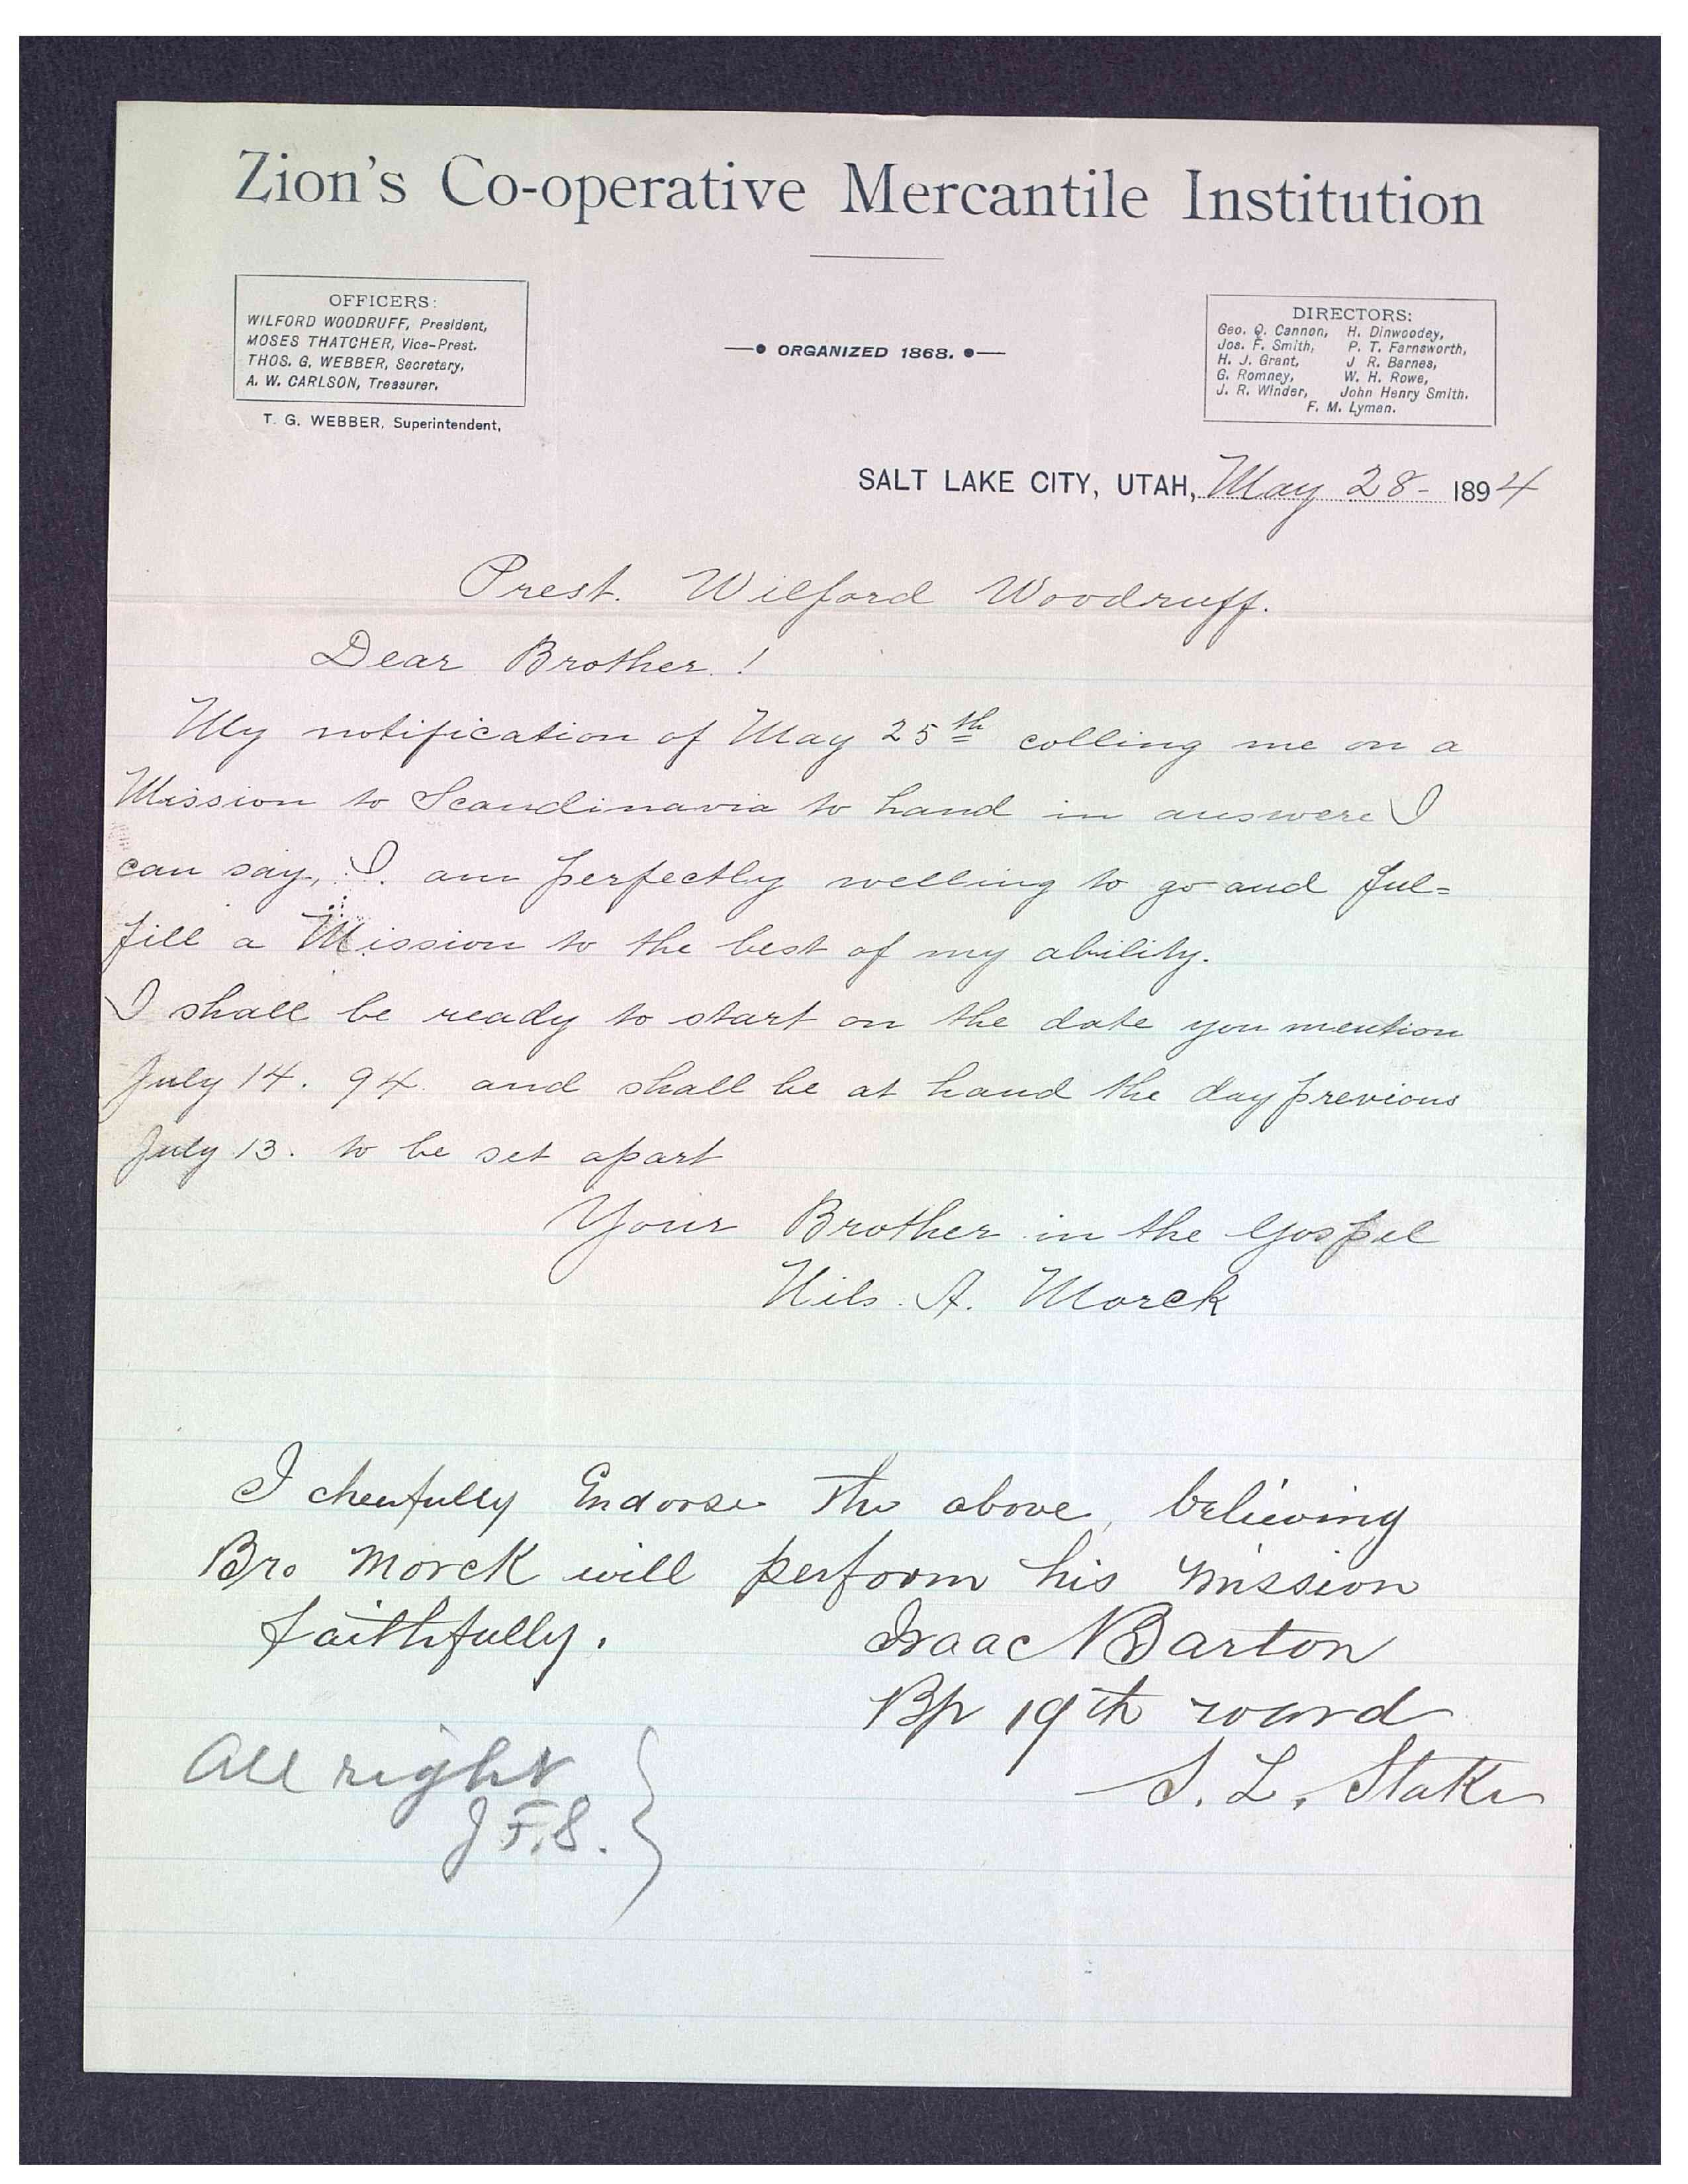 Zion's Co-operative Mercantile Institution
OFFICERS:
WILFORD WOODRUFF, President,
MOSES THATCHER, Vice-Prest.
THOS. G. WEBBER, Secretary,
A. W. CARLSON, Treasurer.
T. G. WEBBER, Superintendent,
ORGANIZED 1868.
DIRECTORS:
Geo. Q. Cannon, H. Dinwoodey,
Jos. F. Smith, P. T. Farnsworth,
H. J. Grant, J R. Barnes,
G. Romney, W. H. Rowe,
J. R. Winder, John Henry Smith.
F. M. Lyman.
SALT LAKE CITY, UTAH, May 28- 1894
Prest. Wilford Woodruff.
Dear Brother!
My notification of May 25th colling me on a
Mission to Scandinavia to hand in answere I
can say, I. am perfectly welling to go and ful=
fill a Mission to the best of my ability.
I shall be ready to start on the date you mention
July 14. 94. and shall be at hand the day previous
July 13. to be set apart
Your Brother in the Gospel
Nils. A. Morck
I cheerfully Endorse The above, believing
Bro Morck will perform his mission
faithfully.
Isaac N Barton
Bp 19th ward
S. L. Stake
All right
J F. S.